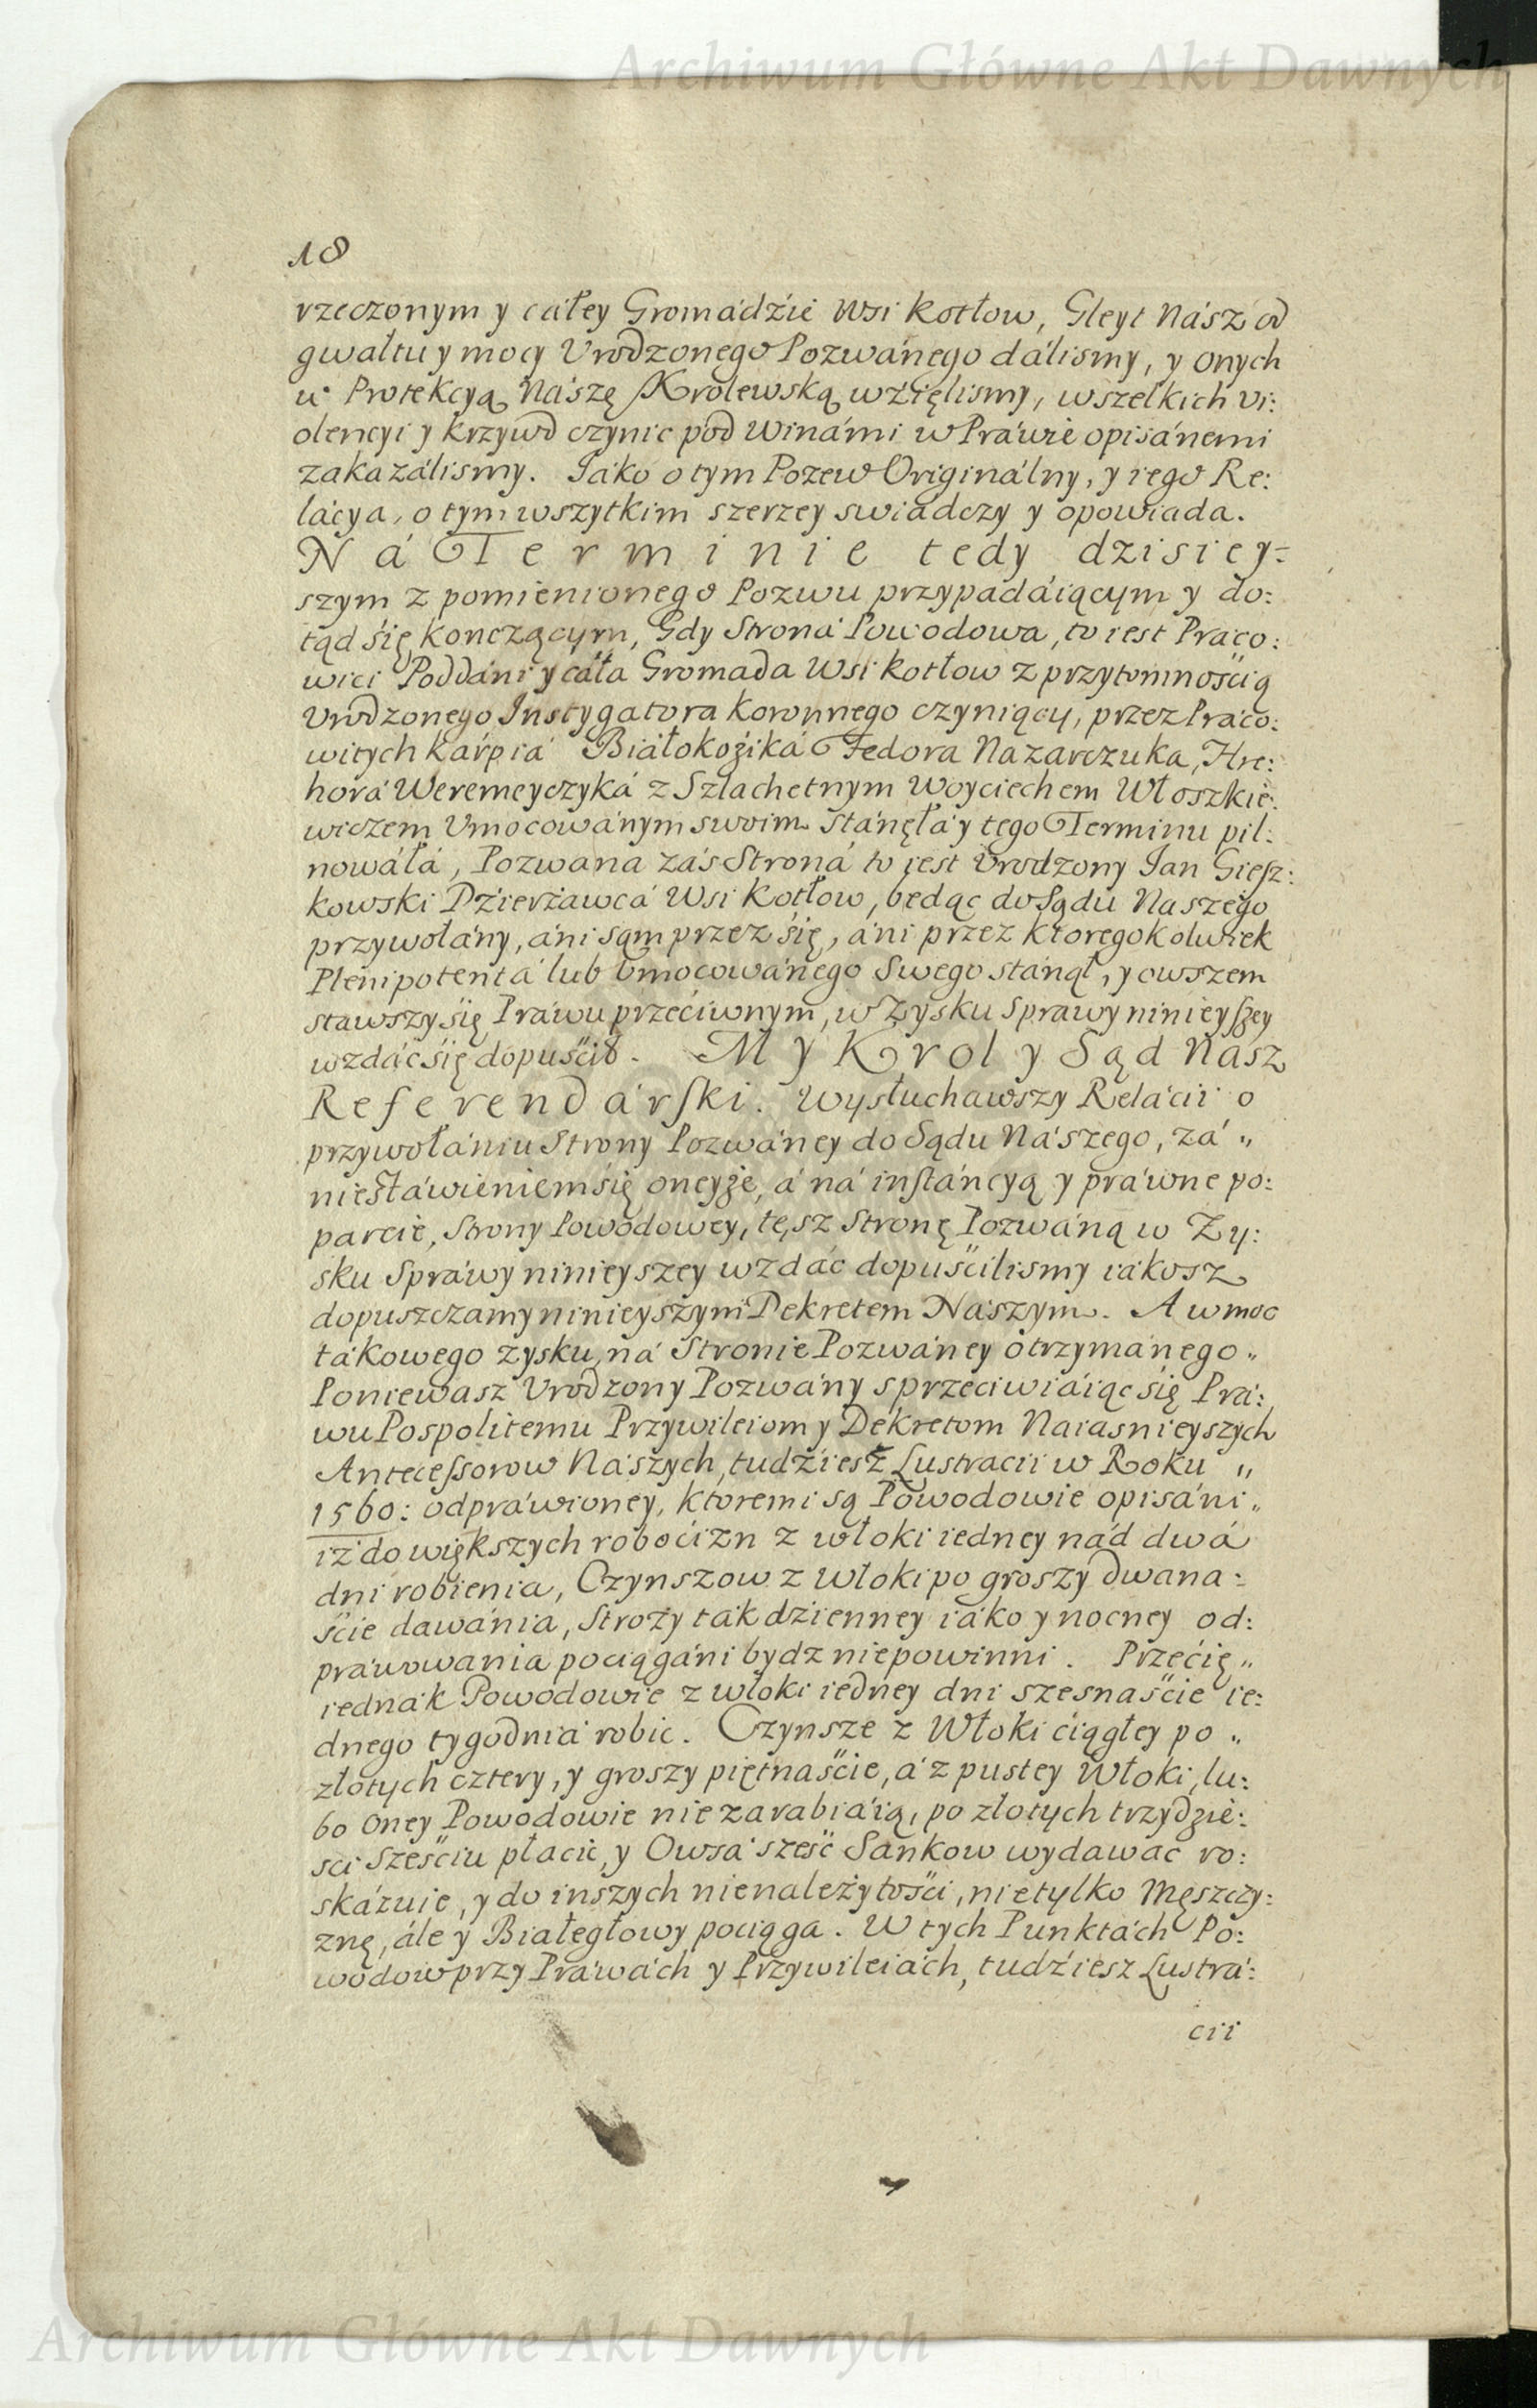 Archiwum Główne Akt Dawnych
18
rzeczonym y cáłey Gromádźie Wsi Kotłow, Gleyt Nász od
gwałtu y mocy Vrodzonego Pozwánego dálismy, y onych
w Protekcyą Nászę Krolewską wźięlismy, wszelkich vi:
olencyi y krzywd czynic pod Winámi w Práwie opisánemi
zakazálismy. Iáko o tym Pozew Originálny, y iego Re:
lácya, o tym wszytkim szerzey swiadczy y opowiada.
Ná Terminie tedy dzisiey=
szym z pomienionego Pozwu przypadáiącym y do:
tąd się konczącym, Gdy Stroná Powodowa, to iest Praco:
wici Poddáni y cáła Gromada Wsi Kotłow z przytomnośćią
Vrodzonego Instygatora Koronnego czyniący, przez Práco:
witych Kárpiá Białokoźiká Fedora Nazarczuka, Hre:
horá Weremeyczyká z Szlachetnym Woyciechem Włoszkie:
wiczem Vmocowánym swoim stánęłá y tego Terminu pil:
nowáłá, Pozwana záś Stroná to iest Vrodzony Ian Giesz:
kowski Dźierżawcá Wsi Kotłow, będąc do Sądu Naszego
przywołány, áni sąm przez się, áni przez ktoregokolwiek
Plenipotentá lub Vmocowánego Swego stánął, y owszem
stawszy się Práwu przećiwnym, w Zysku Sprawy ninieyszey
wzdáć się dopuśćił. My Krol y Sąd Nász
Referendárski. Wysłuchawszy Relácii o
przywołániu Strony Pozwáney do Sądu Nászego, zá „
niestáwieniem się oneyże, á ná instáncyą y práwne po:
parcie, Strony Powodowey, tęsz Stronę Pozwáną w Zy:
sku Spráwy ninieyszey wzdáć dopuśćilismy iákosz
dopuszczamy ninieyszym Dekretem Nászym. A w moc
tákowego zysku, ná Stronie Pozwáney otrzymánego „
Poniewasz Vrodzony Pozwány sprzeciwiáiąc się Prá:
wu Pospolitemu Przywileiom y Dekretom Naiasnieyszych
Antecessorow Nászych, tudźiesz Lustracii w Roku „
1560: odpráwioney, ktoremi są Powodowie opisáni „
iż do większych roboćizn z włoki iedney nád dwá
dni robienia, Czynszow z Włoki po groszy dwana=
śćie dawánia, Stroży ták dzienney iáko y nocney od:
práwowania pociągáni bydz niepowinni. Przećię „
iednák Powodowie z włoki iedney dni szesnaśćie ie:
dnego tygodniá robic. Czynsze z Włoki ćiągłey po „
złotych cztery, y groszy piętnaśćie, á z pustey Włoki, lu:
bo oney Powodowie niezarabiáią, po złotych trzydźie:
sci Sześciu płacic, y Owsá sześć Sankow wydawać ro:
skázuie, y do inszych nienależytośći, nietylko Męszczy:
znę, ále y Białegłowy pociąga. W tych Punktách Po:
wodow przy Práwách y Przywileiách, tudźiesz Lustrá:
cii
Archiwum Główne Akt Dawnych